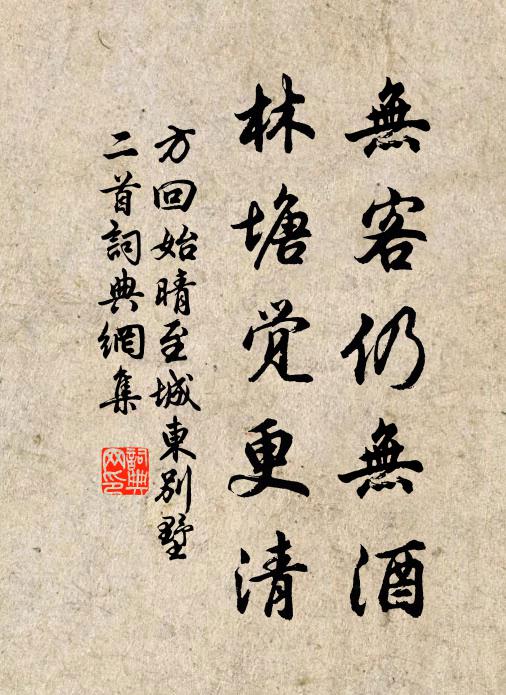 無客仍無酒
林塘觉更清
方回始晴至城東别墅
二首詞典網集
詞典
网印